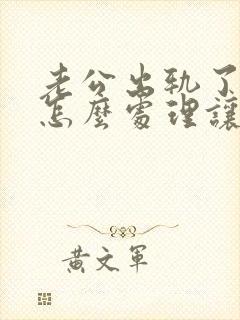 老公出轨了
怎麼處理讓
黄文军